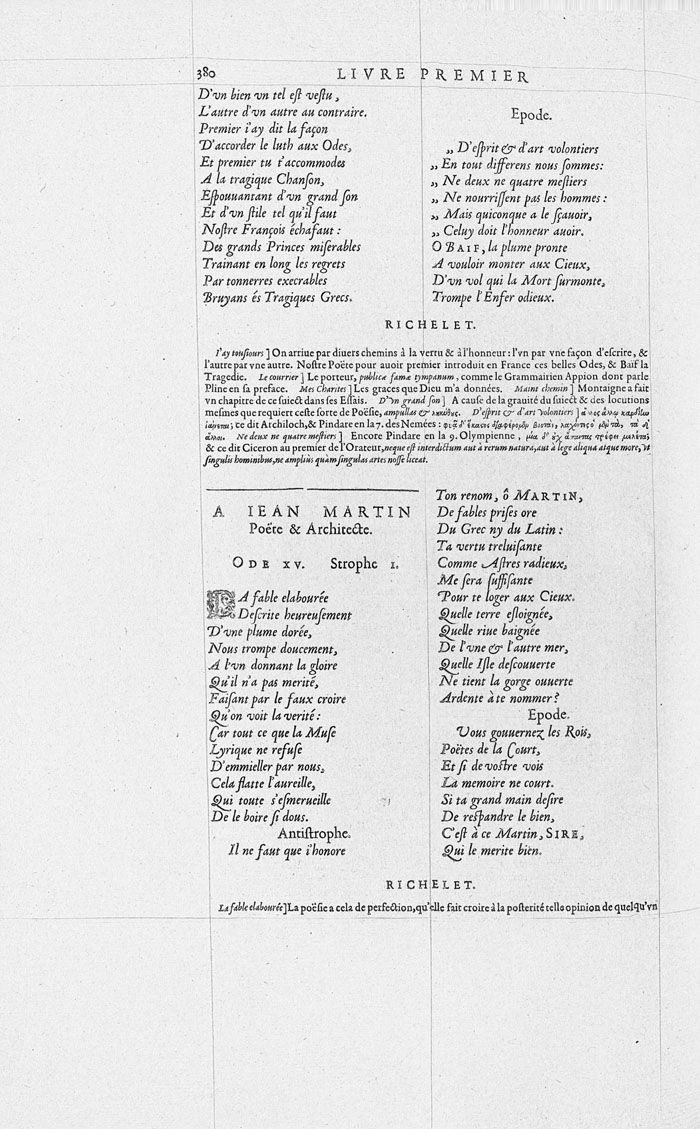 380 LIVRE PREMIER
D'vn bien vn tel est vestu,
L'autre d'vn autre au contraire.
Premier i'ay dit la façon
D'accorder le luth aux Odes,
Et premier tu t'accommodes
A la tragique Chanson,
Espouuantant d'vn grand son
Et d'vn stile tel qu'il faut
Nostre François échafaut:
Des grands Princes miserables
Trainant en long les regrets
Par tonnerres execrables
Bruyans és Tragiques Grecs.
Epode.
„ D'esprit & d'art volontiers
„ En tout differens nous sommes:
„ Ne deux ne quatre mestiers
„ Ne nourrissent pas les hommes:
„ Mais quiconque a le sçauoir,
„ Celuy doit l'honneur auoir.
O BAIF, la plume pronte
A vouloir monter aux Cieux,
D'vn vol qui la Mort surmonte,
Trompe l'Enfer odieux.
RICHELET.
I'ay tousiours] On arriue par diuers chemins à la vertu & à l'honneur: l'vn par vne façon d'escrire, &
l'autre par vne autre. Nostre Poëte pour auoir premier introduit en France ces belles Odes, & Baïf la
Tragedie. Le courrier] Le porteur, publicæ famæ tympanum, comme le Grammairien Appion dont parle
Pline en sa preface. Mes Charites] Les graces que Dieu m'a données. Maint chemin] Montaigne a fait
vn chapitre de ce suiect dans ses Essais. D'vn grand son] A cause de la grauité du suiect & des locutions
mesmes que requiert ceste sorte de Poësie, ampullas & D'esprit & d'art volontiers]
ce dit Archiloch, & Pindare en la 7. des Nemées:
Ne deux ne quatre mestiers] Encore Pindare en la 9. Olympienne,
& ce dit Ciceron au premier de l'Orateur, neque est interdictum aut à rerum natura, aut à lege aliqua atque more, vt
singulis hominibus, ne ampliùs quàm singulas artes nosse liceat.
A IEAN MARTIN
Poëte & Architecte.
ODE XV. Strophe 1.
LA fable elabourée
Descrite heureusement
D'vne plume dorée,
Nous trompe doucement,
A l'vn donnant la gloire
Qu'il n'a pas merité,
Faisant par le faux croire
Qu'on voit la verité:
Car tout ce que la Muse
Lyrique ne refuse
D'emmieller par nous,
Cela flatte l'aureille,
Qui toute s'esmerueille
De le boire si dous.
Antistrophe.
Il ne faut que i'honore
Ton renom, ô MARTIN,
De fables prises ore
Du Grec ny du Latin:
Ta vertu treluisante
Comme Astres radieux,
Me sera suffisante
Pour te loger aux Cieux.
Quelle terre esloignée,
Quelle riue baignée
De l'vne & l'autre mer,
Quelle Isle descouuerte
Ne tient la gorge ouuerte
Ardente à te nommer?
Epode.
Vous gouuernez les Rois,
Poëtes de la Court,
Et si de vostre vois
La memoire ne court.
Si ta grand main desire
De respandre le bien,
C'est à ce Martin, SIRE,
Qui le merite bien.
RICHELET.
La fable elabourée] La poësie a cela de perfection, qu'elle fait croire à la posterité telle opinion de quelqu'vn